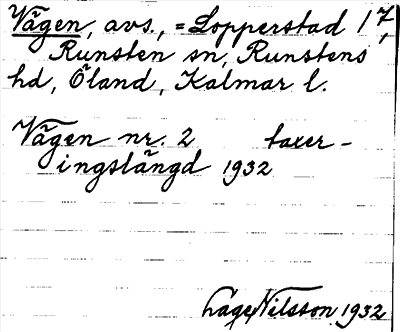 Vägen, avs., = Lopperstad 1 7,
Runsten sn, Runstens
hd, Öland, Kalmar l.
Vägen nr. 2 taxer-
ingslängd 1932
Läge Nilsson 1932